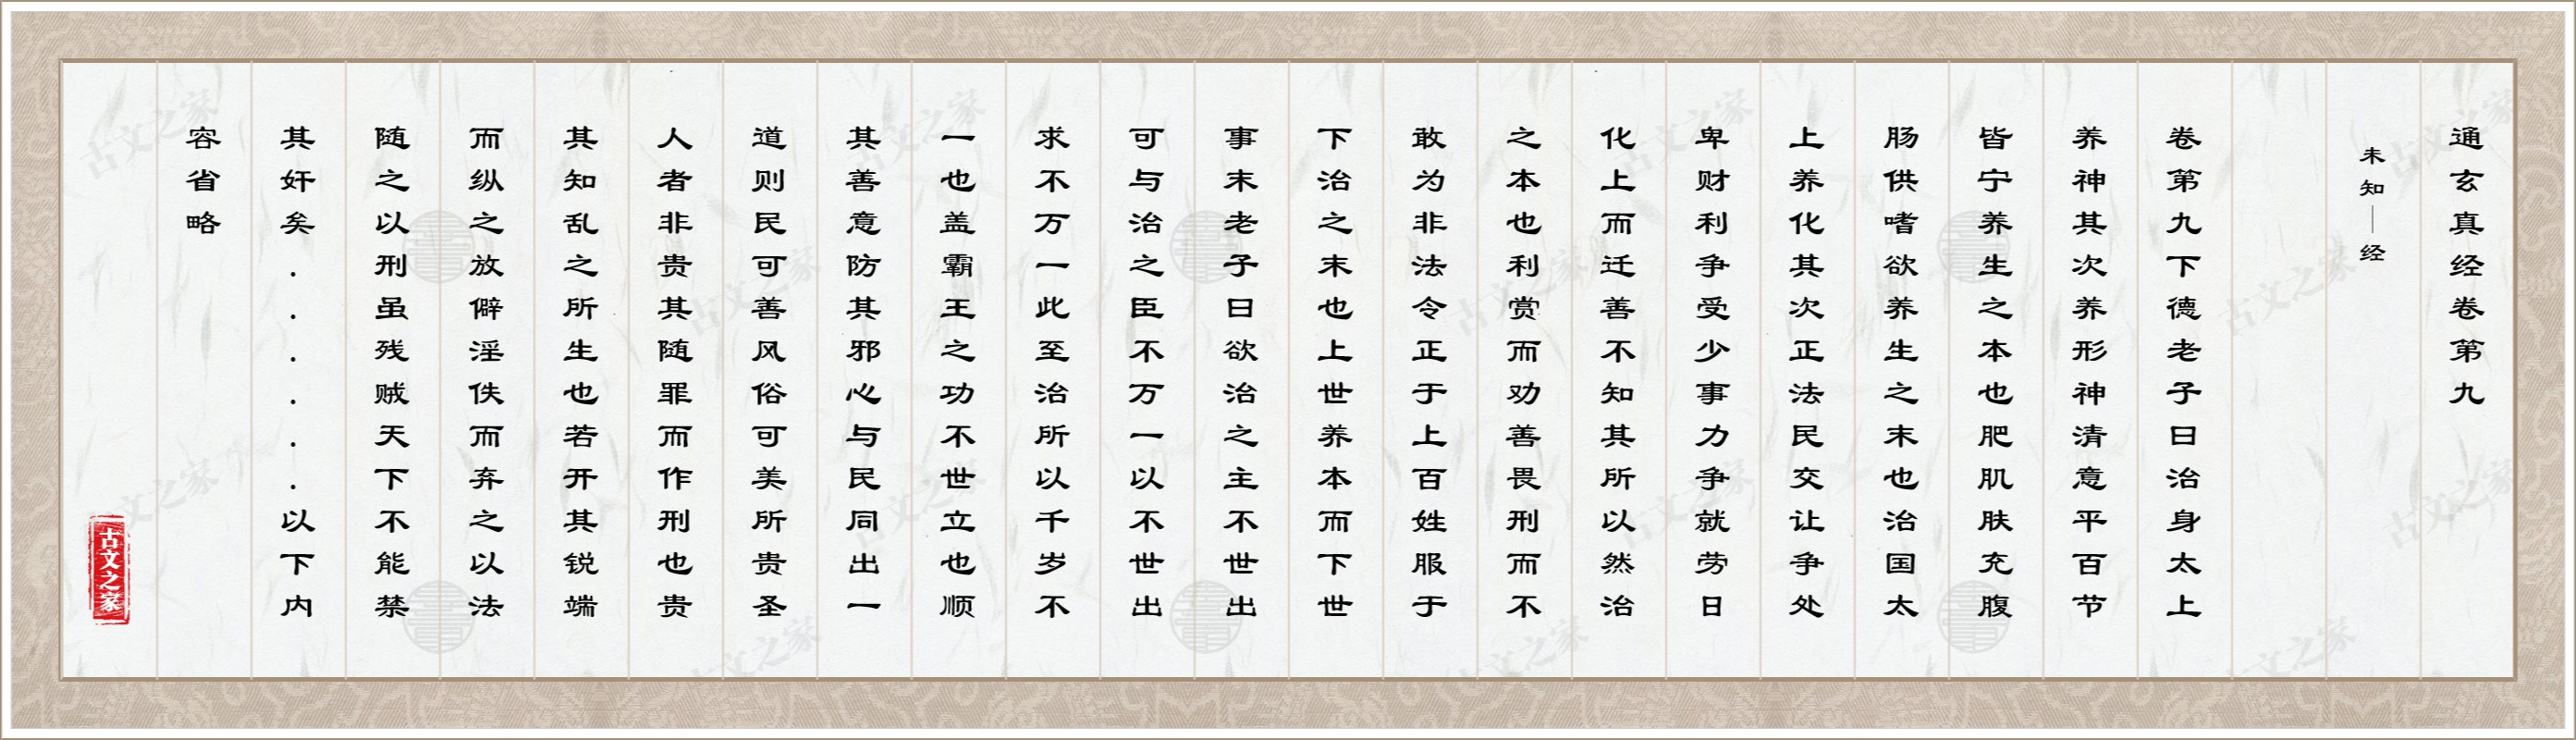 通玄真经卷第九
未知｜经
卷第九下德老子曰治身太上
养神其次养形神清意平百节
皆宁养生之本也肥肌肤充腹
肠供嗜欲养生之末也治国太
上养化其次正法民交让争处
卑财利争受少事力争就劳日
化上而迁善不知其所以然治
之本也利赏而劝善畏刑而不
敢为非法令正于上百姓服于
下治之末也上世养本而下世
事末老子曰欲治之主不世出
可与治之臣不万一以不世出
求不万一此至治所以千岁不
一也盖霸王之功不世立也顺
其善意防其邪心与民同出一
道则民可善风俗可美所贵圣
人者非贵其随罪而作刑也贵
其知乱之所生也若开其锐端
而纵之放僻淫佚而弃之以法
随之以刑虽残贼天下不能禁
其奸矣......以下内
容省略
古文之家